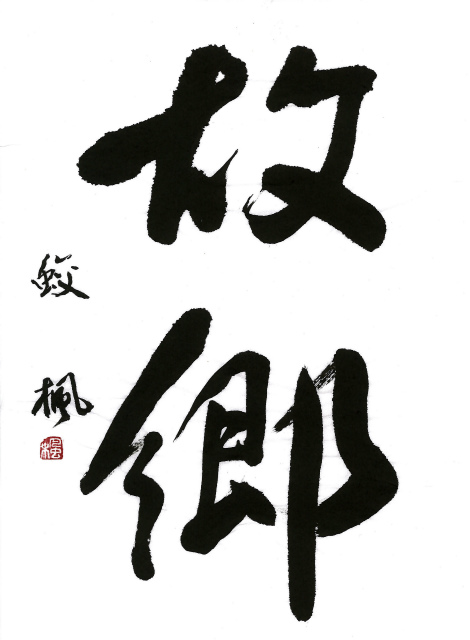 故鄉
鮫楓
楓